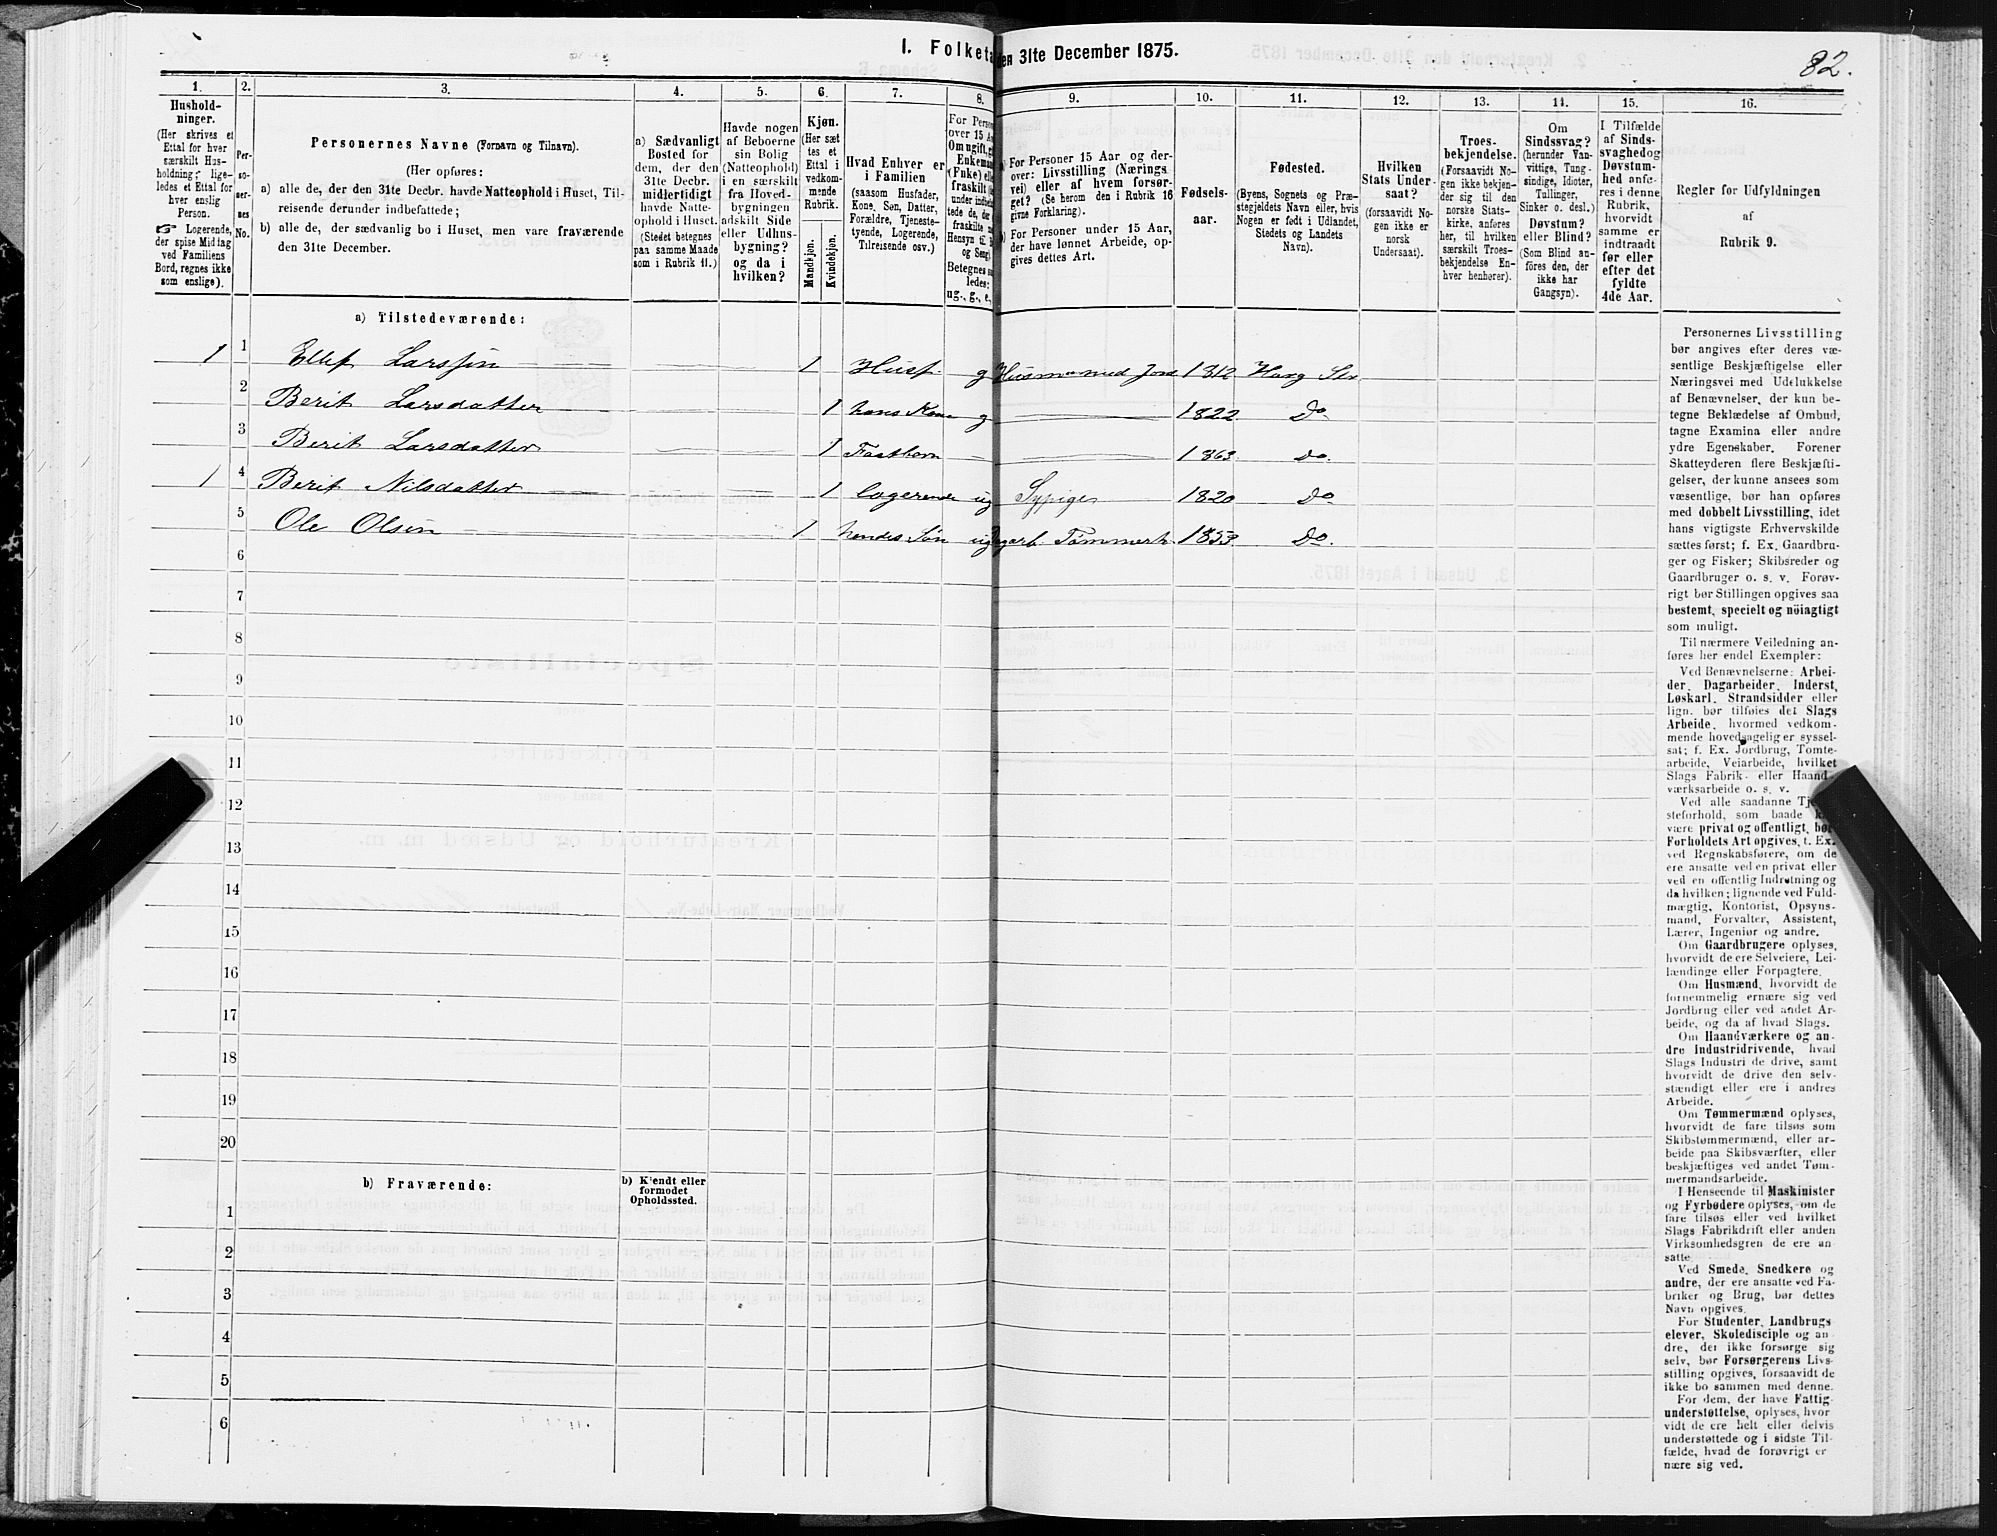 I. Folketa
den 31te December 1875.
82.
1.
2.
3.
4.
5.
6.
7.
8.
9.
10.
11.
12.
13.
14.
15.
16.
Hushold-
ninger.
(Her skrives et
Ettal for hver
særskilt Hus-
holdning; lige-
ledes et Ettal for
hver enslig
Person.
☞ Logerende,
der spise Middag
ved Familiens
Bord, regnes ikke
som enslige).
Per-
so-
ner-
nes
No.
Personernes Navne (Fornavn og Tilnavn).
(Her opføres:
a) alle de, der den 31te Decbr. havde Natteophold i Huset, Til-
reisende derunder indbefattede;
b) alle de, der sædvanlig bo i Huset, men vare fraværende
den 31te December.
a) Sædvanligt
Bosted for
dem, der den
31te Decbr.
midlertidigt
havde Natte-
ophold i Huset.
(Stedet betegnes
paa samme Maade
som i Rubrik 11.)
Havde nogen
af Beboerne
sin Bolig
(Natteophold)
i en særskilt
fra Hoved-
bygningen
adskilt Side
eller Udhus-
bygning?
og da i
hvilken?
Kjøn.
(Her sæt
tes et
Ettal i
vedkom-
mende
Rubrik.
Mandkjøn.
Kvindekjøn.
Hvad Enhver er
i Familien
(saasom Husfader,
Kone, Søn, Datter,
Forældre, Tjeneste-
tyende, Logerende,
Tilreisende osv.)
For Person
over 15 Aa
Om ugift, g
Enkeman
(Enke) elle
fraskilt
under indbe
tede de, de
fraskilte
Hensyn til
og Seng
Betegnes s
ledes:
ug., g., e.,
a) For Personer 15 Aar og der-
over: Livsstilling (Nærings
vei) eller af hvem forsør-
get? (Se herom den i Rubrik 16
givne Forklaring).
b) For Personer under 15 Aar,
der have lønnet Arbeide, op-
gives dettes Art.
Fødsels-
aar.
Fødested.
(Byens, Sognets og Præ-
stegjeldets Navn eller, hvis
Nogen er født i Udlandet,
Stedets og Landets
Navn).
Hvilken
Stats Under-
saat?
(forsaavidt No-
gen ikke er
norsk
Undersaat).
Troes-
bekjendelse.
(Forsaavidt No-
gen ikke bekjen-
der sig til den
norske Stats-
kirke, anføres
her, til hvilken
særskilt Troes-
bekjendelse En-
hver henhører).
Om
Sindssvag?
(herunder Van-
vittige, Tung-
sindige, Idioter,
Tullinger,
Sinker o. desl.)
Døvstum?
eller Blind?
(Som Blind an-
føres den, der
ikke har
Gangsyn).
I Tilfælde
af Sinds-
svaghed og
Døvstum-
hed anfø-
res i denne
Rubrik,
hvorvidt
samme er
indtraadt
før eller
efter det
fyldte
4de Aar.
Regler for Udfyldningen
af
Rubrik 9.
a) Tilstedeværende:
1 1 Ellef Larssøn 1 Husf. g Husm. med Jord 1812
2 Berit Larsdatter 1 hans Kone g 1822 Do
3 Berit Larsdatter 1 1863. Do.
1 4 Berit Nilsdatter 1 logerende ug Sypige 1820 Do
5 Ole Olsen 1 hendes Søn ug 1853. Do.
6
7
8
9
10
11
12
13
14
15
16
17
18
19
20
b) Fraværende:
b) Kjendt eller
formodet
Opholdssted.
1
2
3
4
5
6
Personernes Livsstilling
bør angives efter deres væ-
sentlige Beskjæftigelse eller
Næringsvei med Udelukkelse
af Benævnelser, der kun be-
tegne Beklædelse af Ombud,
tagne Examina eller andre
ydre Egenskaber. Forener
Skatteyderen flere Beskjæfti-
gelser, der kunne ansees som
væsentlige, bør han opføres
med dobbelt Livsstilling, idet
hans vigtigste Erhvervskilde
sættes først; f. Ex. Gaardbru-
ger og Fisker; Skibsreder og
Gaardbruger o. s. v. Forøv-
rigt bør Stillingen opgives saa
bestemt, specielt og nöiagtigt
som muligt.
Til nærmere Veiledning an-
føres her endel Exempler:
Ved Benævnelserne: Arbei-
der, Dagarbeider, Inderst,
Løskarl, Strandsidder eller
lign. bør tilføies det Slags
Arbeide, hvormed vedkom-
mende hovedsagelig er syssel-
sat; f. Ex. Jordbrug, Tomte-
arbeide, Veiarbeide, hvilket
Slags Fabrik- eller Haand-
værksarbeide o. s. v.
Ved alle saadanne
steforhold, som baade
være privat og offentligt, bør
Forholdets Art opgives, f. Ex.
ved Regnskabsførere, om de
ere ansatte ved en privat eller
ved en offentlig Indretning og
da hvilken; lignende ved Fuld-
mægtig, Kontorist, Opsyns-
mand, Forvalter, Assistent,
Lærer, Ingeniør og andre.
Om Gaardbrugere oplyses,
hvorvidt de ere Selveiere, Lei-
lændinge eller Forpagtere.
Om Husmænd, hvorvidt de
fornemmelig ernære sig ved
Jordbrug eller ved andet Ar-
beide, og da af hvad Slags.
Om Haandværkere og an-
dre Industridrivende, hvad
Slags Industri de drive, samt
hvorvidt de drive den selv-
stændigt eller ere i andres
Arbeide.
Om Tømmermænd oplyses,
hvorvidt de fare tilsøs som
Skibstømmermænd, eller ar-
beide paa Skibsværfter, eller
beskjæftiges ved andet Tøm-
mermandsarbeide.
I Henseende til Maskinister
og Fyrbødere oplyses, om de
fare tilsøs eller ved hvilket
Slags Fabrikdrift eller anden
Virksomhedsgren de ere an-
satte.
Ved Smede, Snedkere og
andre, der ere ansatte ved Fa-
briker og Brug, bør dettes
Navn opgives.
For Studenter, Landbrugs-
elever, Skoledisciple og an-
dre, der ikke forsørge sig
selv, bør Forsørgerens Livs-
stilling opgives, forsaavidt de
ikke bo sammen med denne.
For dem, der have Fattig-
understøttelse, oplyses, hvor-
vidt de ere helt eller delvis
understøttede og i sidste Til-
fælde, hvad de forøvrigt er-
nære sig ved.